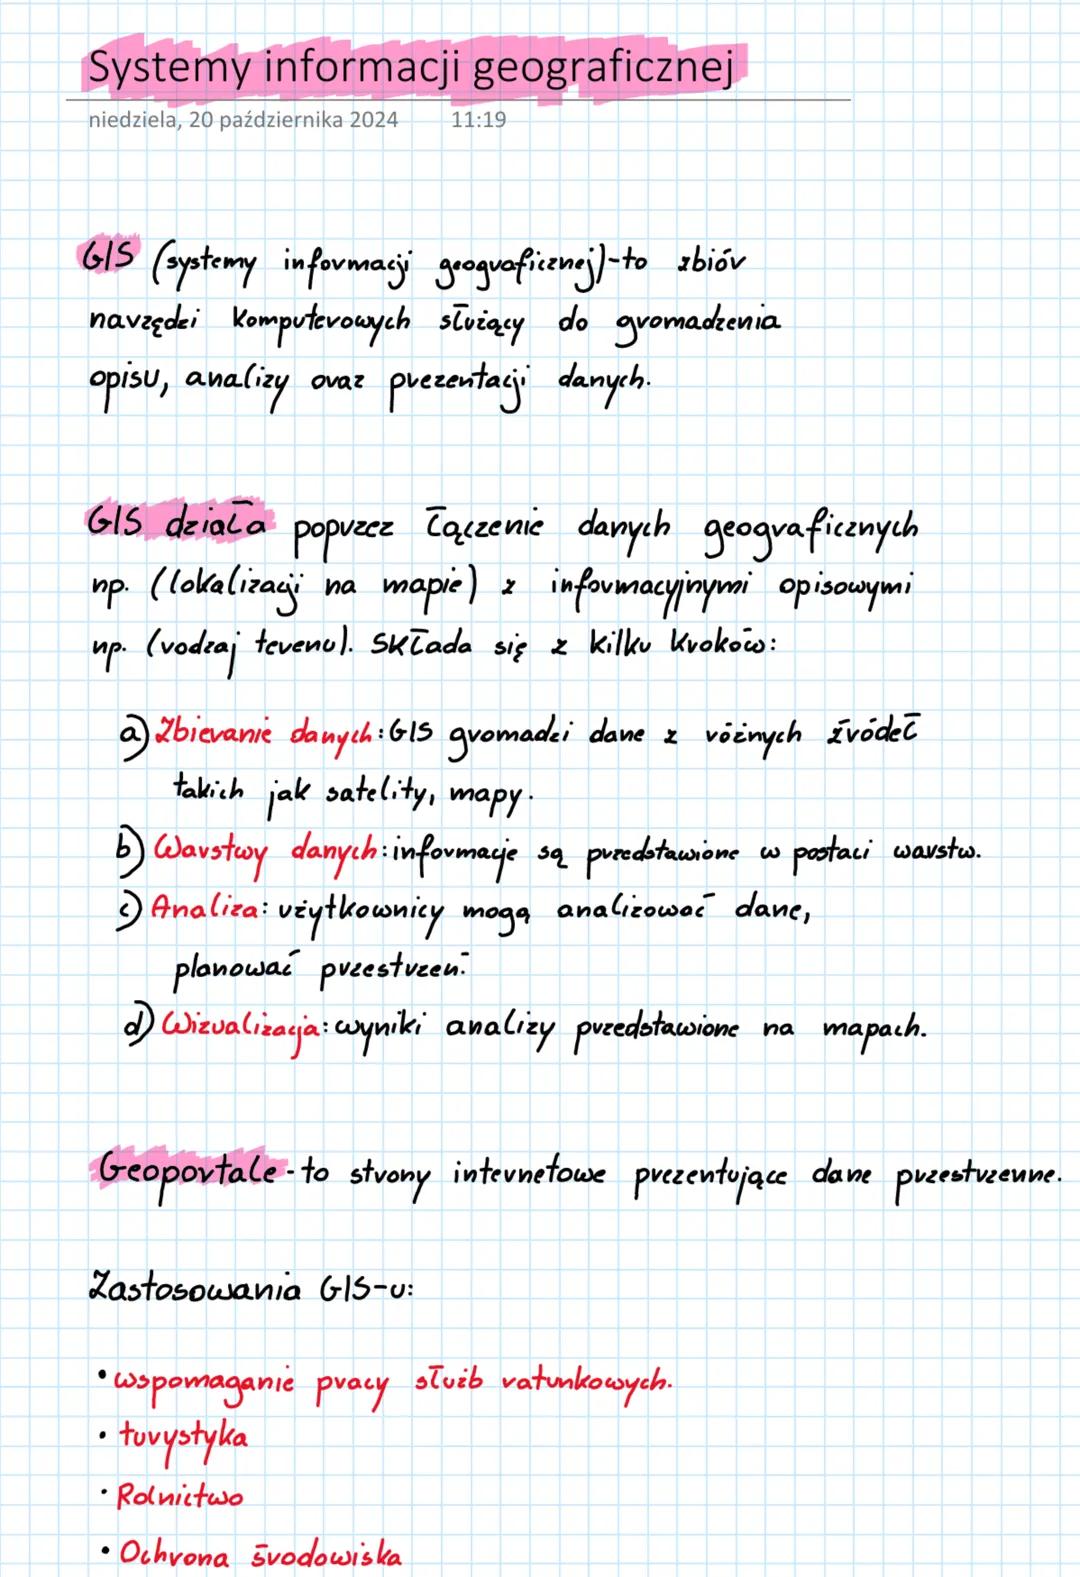 Systemy informacji geograficznej
niedziela, 20 października 2024 11:19
GIS (systemy informacji geograficznej)-to zbiór
narzędzi komputerowych służący do gromadzenia
opisu, analizy oraz prezentacji danych.
GIS działa poprzez łączenie danych geograficznych
np. (lokalizacji na mapie) z informacyjnymi opisowymi
np. (rodzaj terenu). Składa się z kilku kroków:
a) Zbieranie danych: GIS gromadzi dane z różnych źródeł
takich jak satelity, mapy.
b) Warstwy danych: informacje są przedstawione w postaci warstw.
c) Analiza: użytkownicy mogą analizować dane,
planować przestrzeń.
d) Wizualizacja: wyniki analizy przedstawione na mapach.
Geoportale - to strony internetowe prezentujące dane przestrzenne.
Zastosowania GIS-u:
• wspomaganie pracy służb ratunkowych.
• turystyka
• Rolnictwo
• Ochrona środowiska